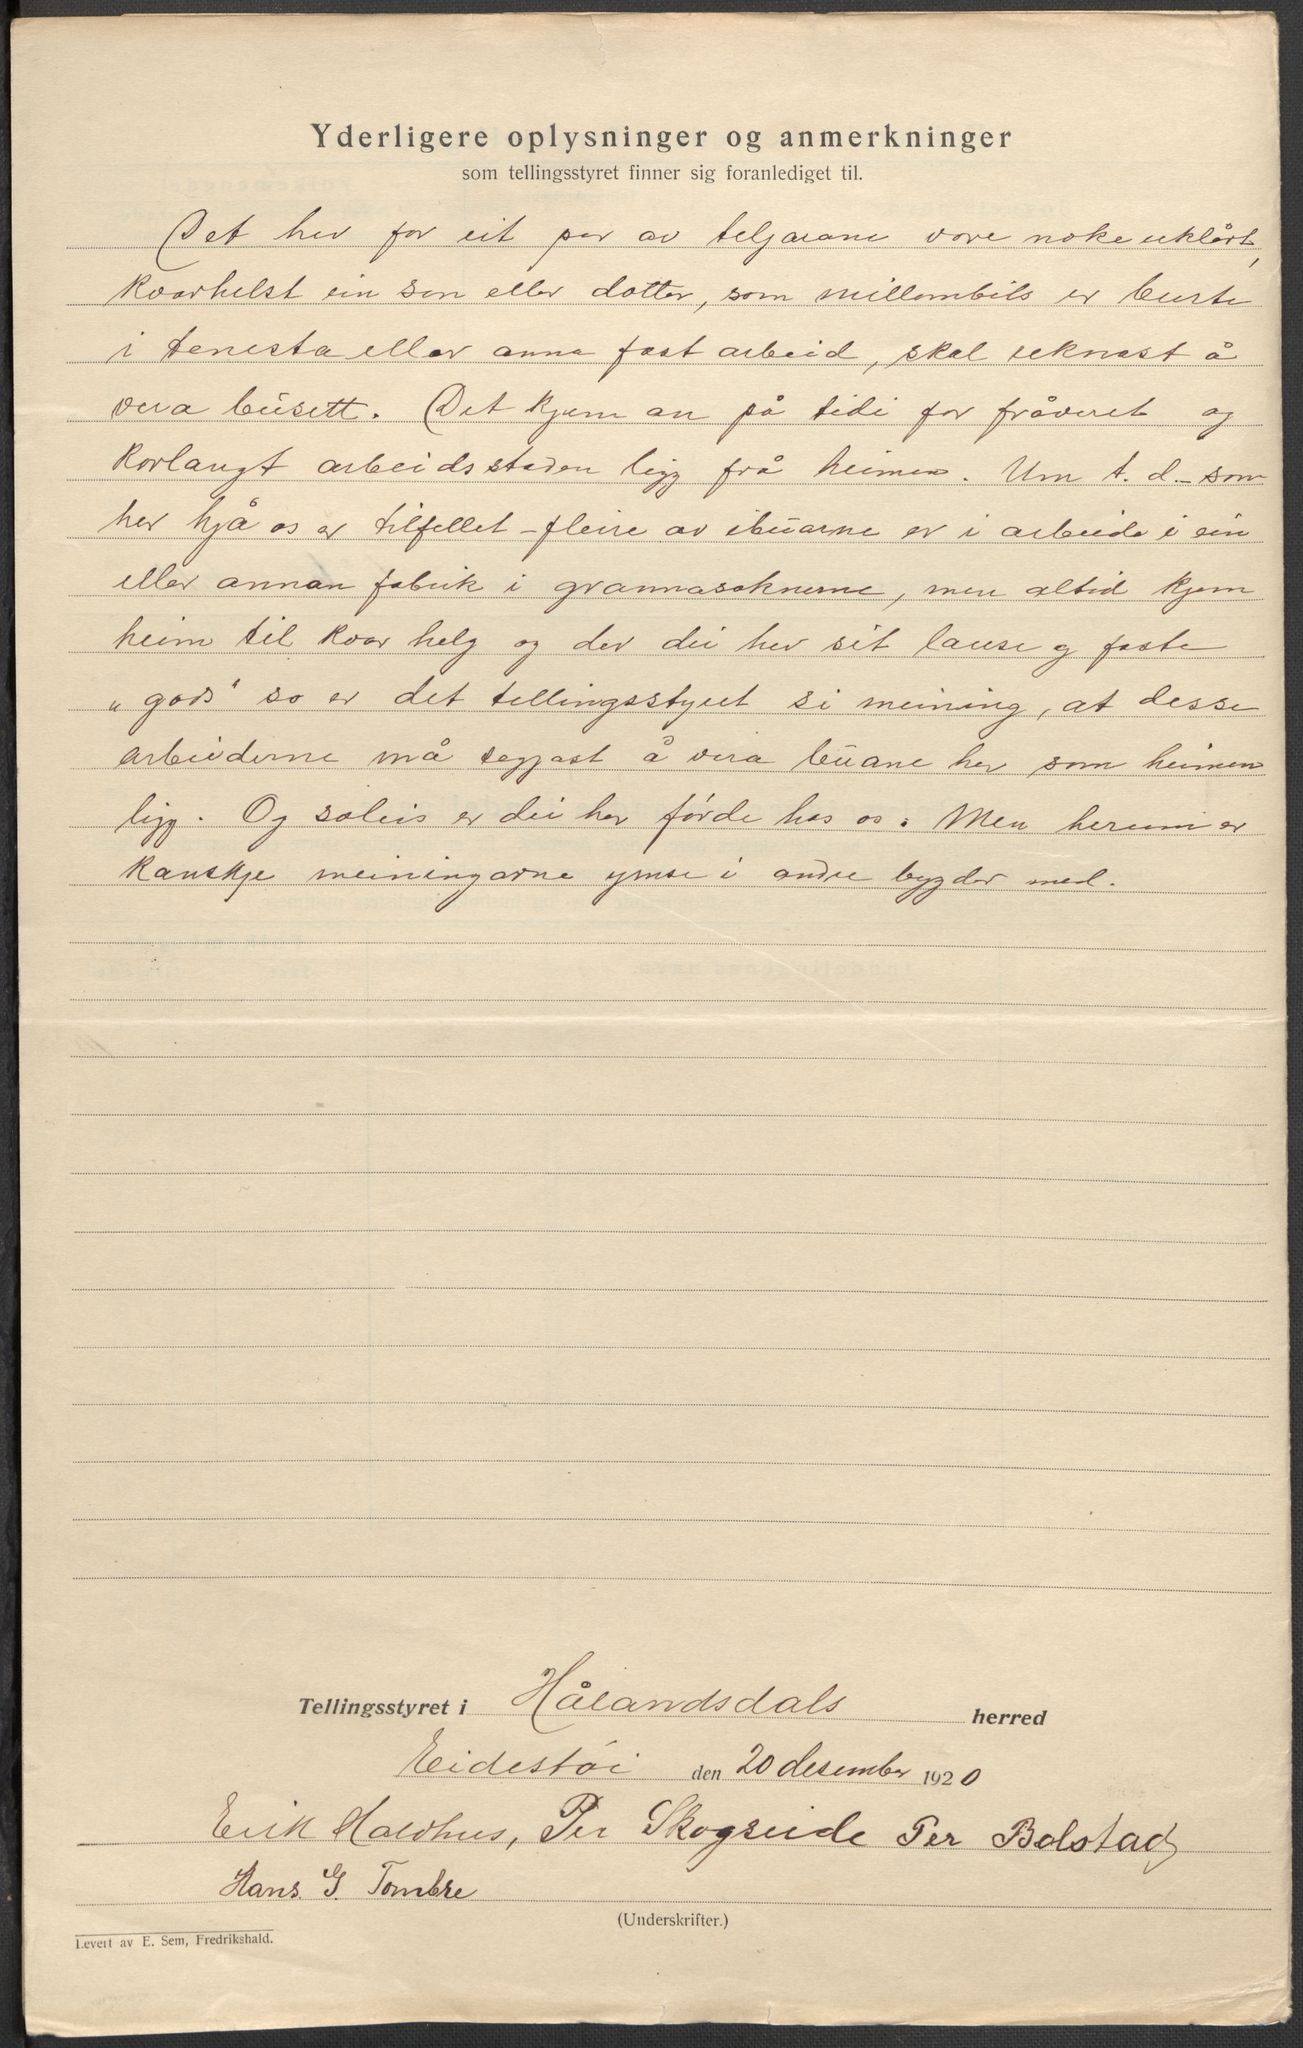 Yderligere oplysninger og anmerkninger
som tellingsstyret finner sig foranlediget til.
Det hev for eit par av teljarane vore noke uklårt,
kvarhelst ein son eller dotter, som millombils er burte
i tenesta eller anna fast arbeid, skal reknast å
vera búsett. Det kjem an på tidi for fråveret og
korlangt arbeidsstaden ligg frå heimen. Um t. d. – som
her hjå os er tilfellet – fleire av ibúarne er i arbeide i ein
eller annan fabrik i grannasoknerne, men altid kjem
heim til kvar helg og der dei hev sit lause og faste
„gods" so er det tellingsstyret si meining, at desse
arbeiderne må segjast å vera búane her som heimen
ligg. Og soleis er dei her förde hos os. Men herum er
kanskje meiningarne ymse i andre bygder med.
Tellingsstyret i Hålandsdals herred
Eidestöi den 20 desember 1920
Erik Haldhus, Per Skogseide Per Bolstad
Hans. G. Tombre
(Underskrifter.)
Levert av E. Sem, Fredrikshald.